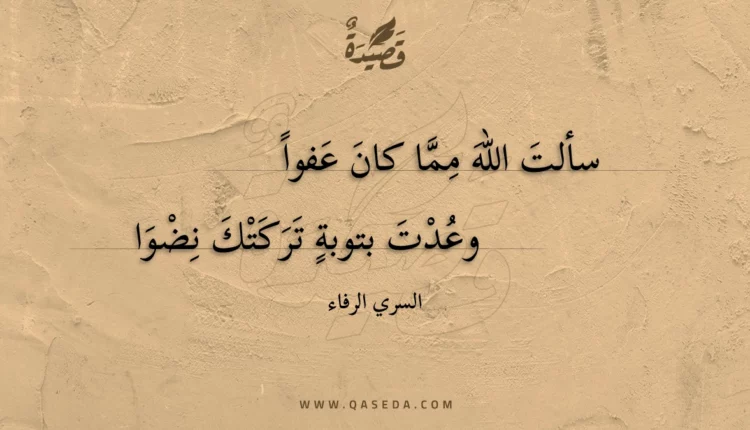 قَصِيدَةٌ
سألتَ اللهَ مِمَّا كانَ عَفواً
وعُدْتَ بتوبةٍ تَرَكَتْكَ نِضْوَا
السري الرفاء
WWW.QASEDA.COM